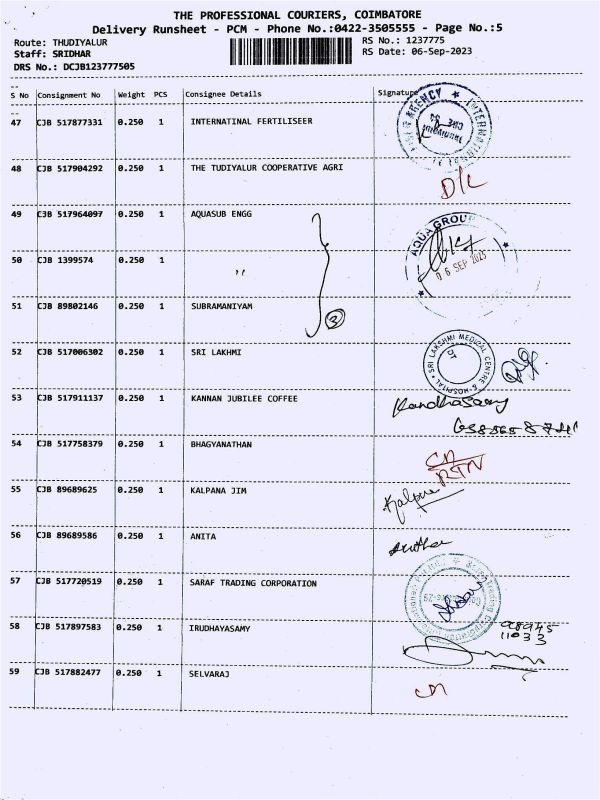 THE PROFESSIONAL COURIERS, COIMBATORE
Delivery Runsheet - PCM - Phone No.:0422-3505555 - Page No.:5
Route: THUDIYALUR
Staff: SRIDHAR
DRS No.: DCJB123777505
RS No.: 1237775
RS Date: 06-Sep-2023
S No Consignment No Weight PCS Consignee Details Signature
47 CJB 517877331 0.250 1 INTERNATINAL FERTILISEER
48 CJB 517904292 0.250 1 THE TUDIYALUR COOPERATIVE AGRI D/L
49 CJB 517964097 0.250 1 AQUASUB ENGG
AQUA GROUP
06 SEP 2023
50 CJB 1399574 0.250 1 ,,
51 CJB 89802146 0.250 1 SUBRAMANIYAM
3
52 CJB 517006302 0.250 1 SRI LAKHMI
SRI LAKSHMI MEDICAL CENTRE & HOSPITAL
OT
53 CJB 517911137 0.250 1 KANNAN JUBILEE COFFEE Kandhasamy
54 CJB 517758379 0.250 1 BHAGYANATHAN
RTN
55 CJB 89689625 0.250 1 KALPANA JIM Kalpana
56 CJB 89689586 0.250 1 ANITA
57 CJB 517720519 0.250 1 SARAF TRADING CORPORATION
58 CJB 517897583 0.250 1 IRUDHAYASAMY
11033
59 CJB 517882477 0.250 1 SELVARAJ